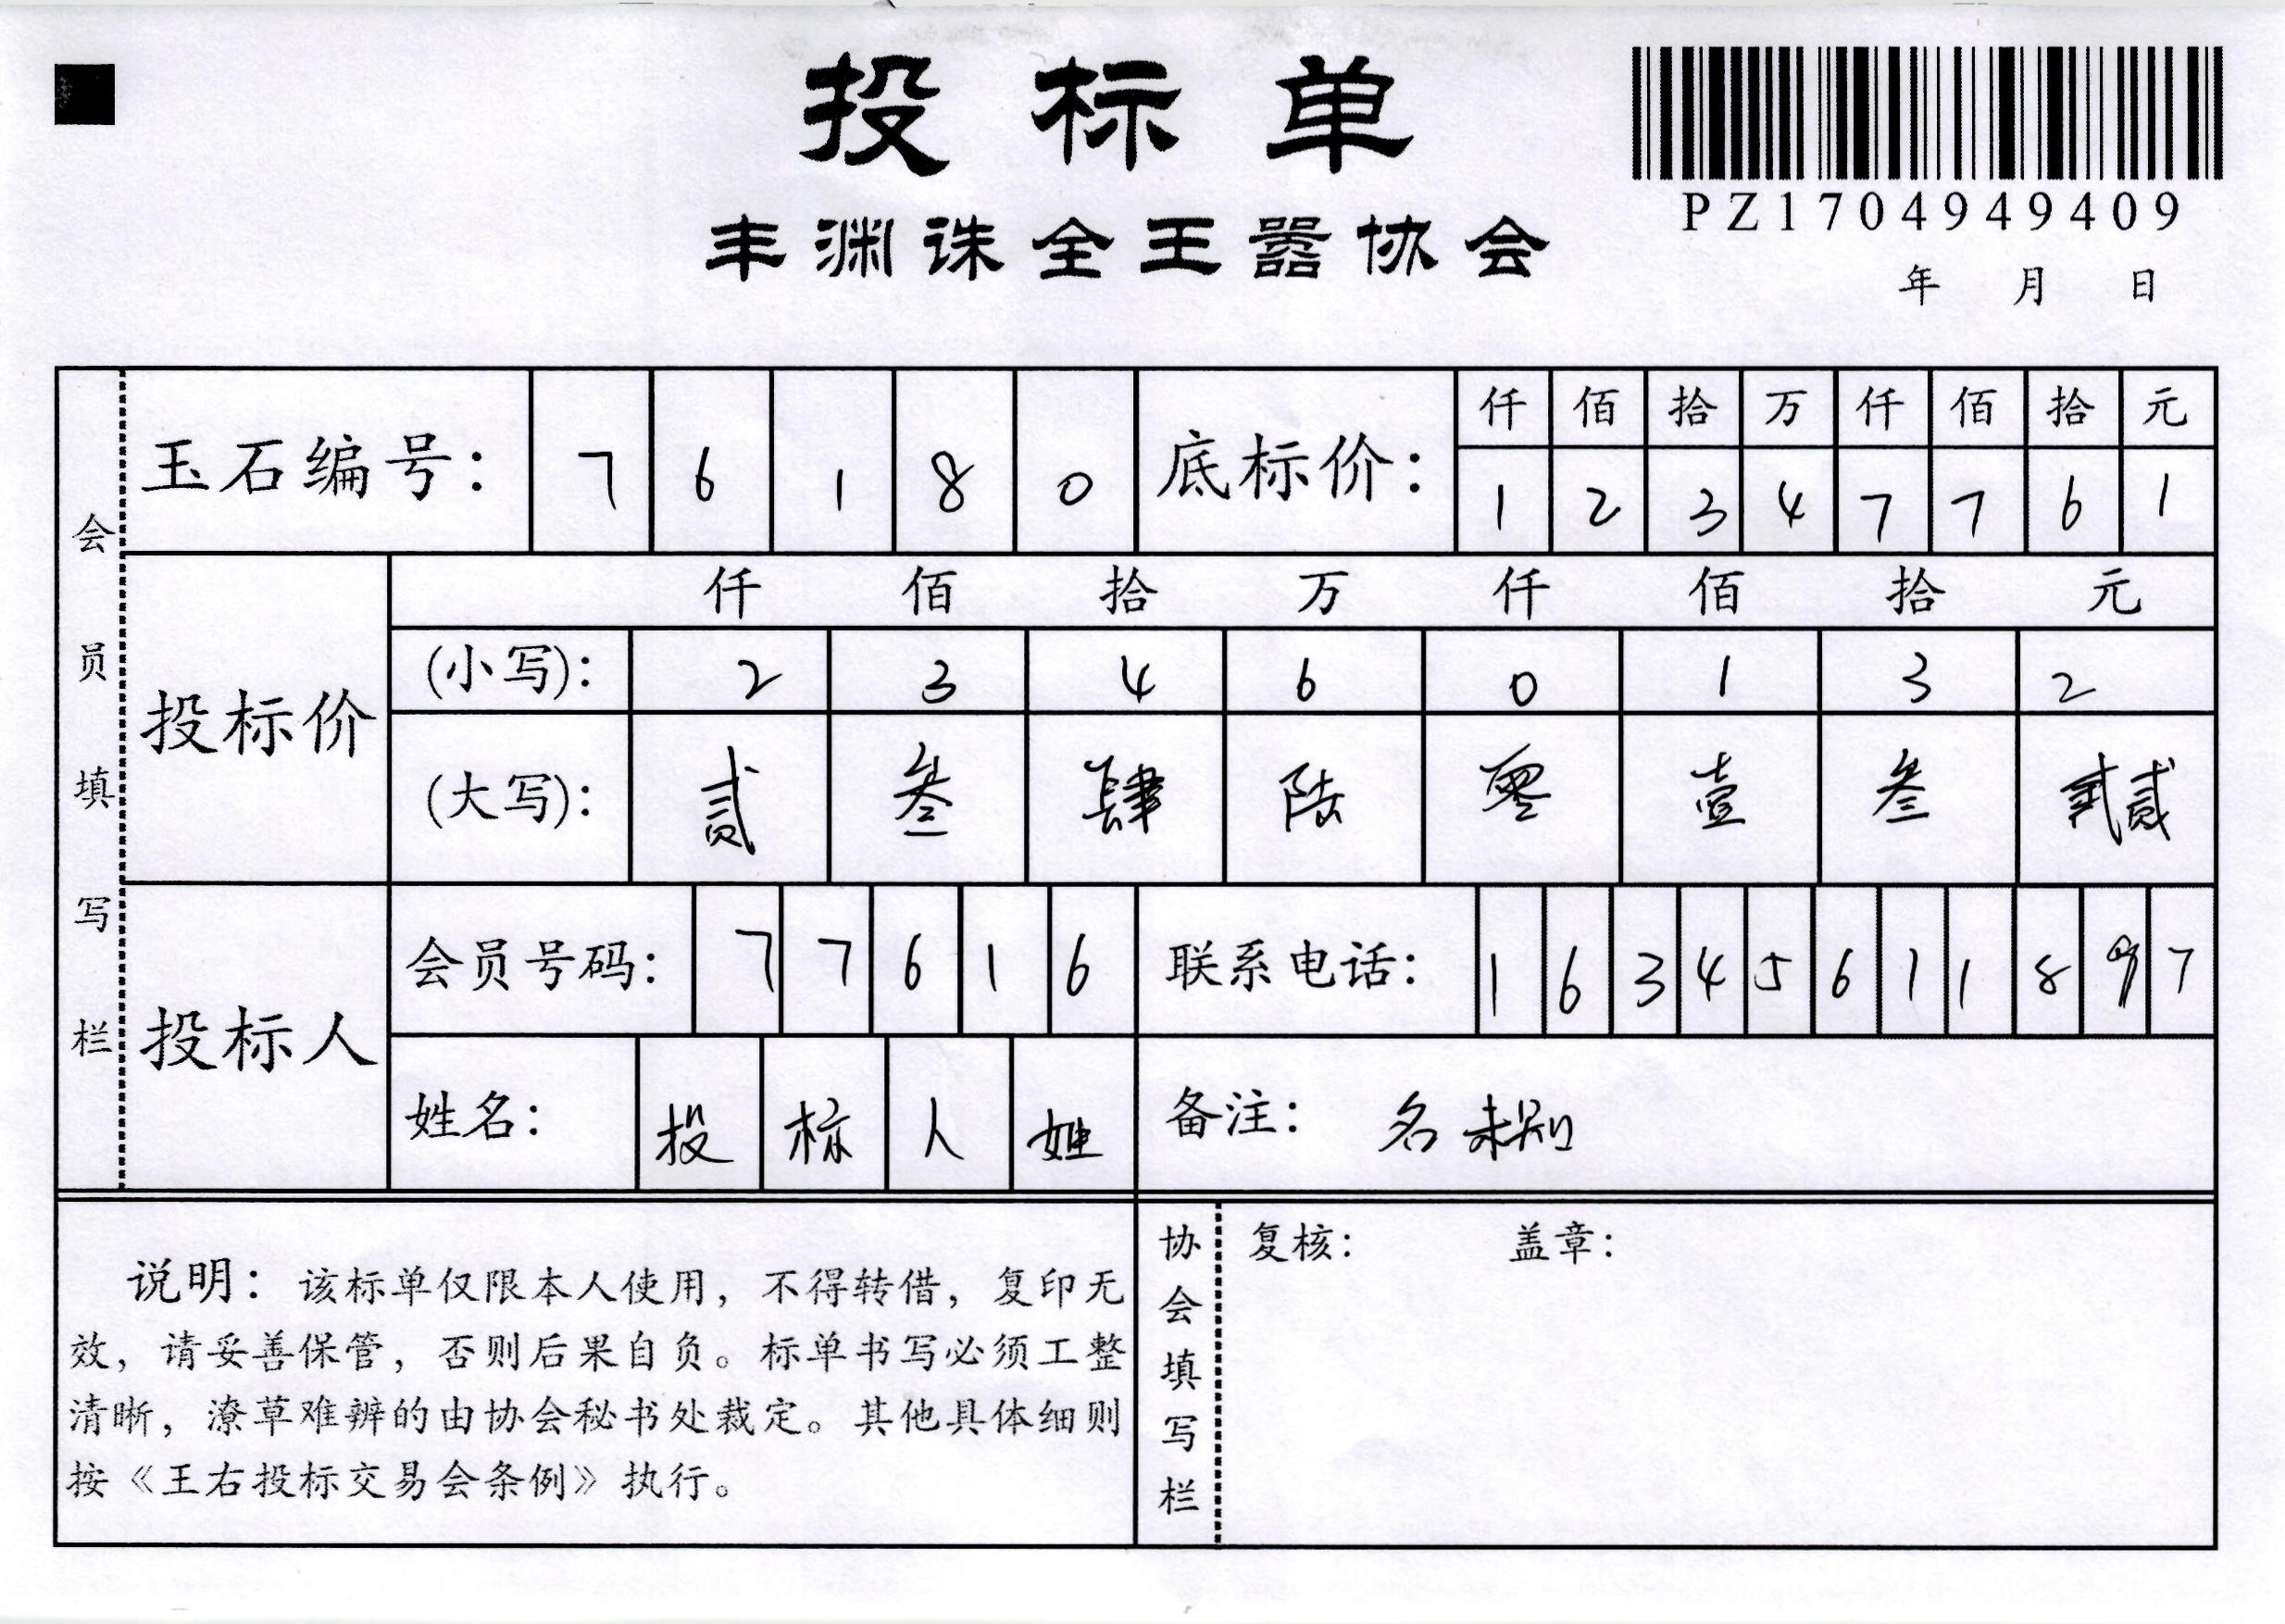 投标单
丰渊诛全王嚣协会
PZ1704949409
年 月 日
会员填写栏
玉石编号: 7 6 1 8 0
底标价: 仟 佰 拾 万 仟 佰 拾 元
1 2 3 4 7 7 6 1
投标价
仟 佰 拾 万 仟 佰 拾 元
(小写): 2 3 4 6 0 1 3 2
(大写): 贰 叁 肆 陆 零 壹 叁 贰
投标人
会员号码: 7 7 6 1 6
联系电话: 1 6 3 4 5 6 1 1 8 9 7
姓名: 投 标 人 姓
备注: 名未知
说明：该标单仅限本人使用，不得转借，复印无
效，请妥善保管，否则后果自负。标单书写必须工整
清晰，潦草难辨的由协会秘书处裁定。其他具体细则
按《王右投标交易会条例》执行。
协会填写栏
复核: 盖章: